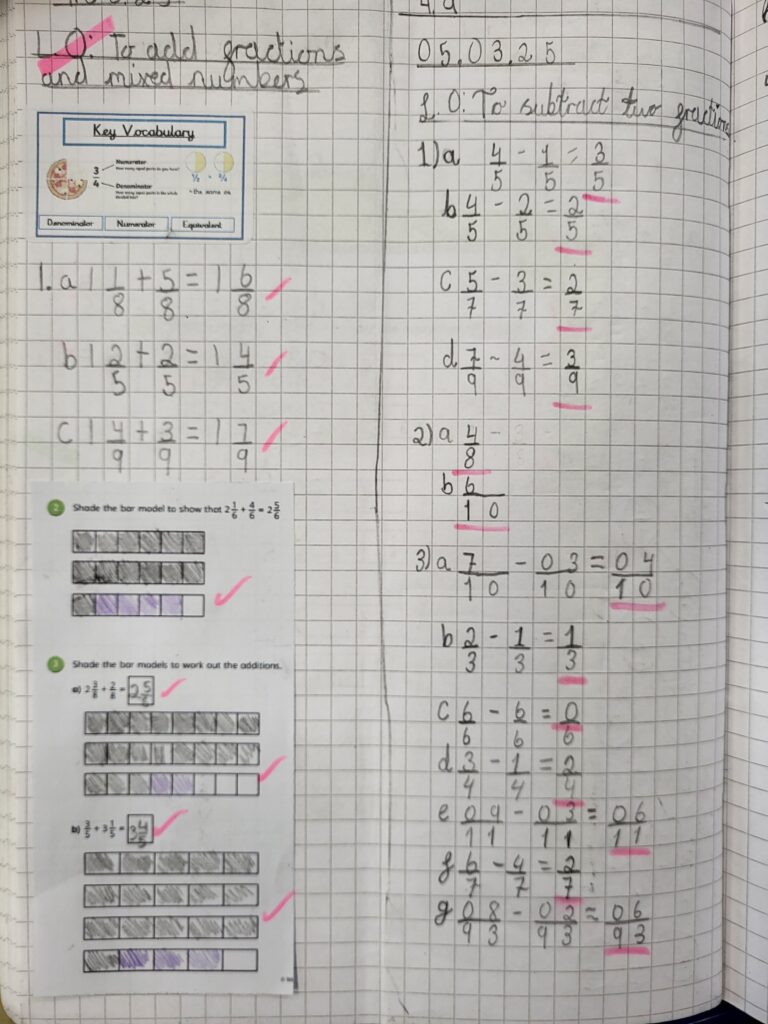 L.O: To add fractions
and mixed numbers
Key Vocabulary
3/4
Numerator
How many equal parts do you have?
Denominator
1/2 = 2/4
= the same as
Denominator Numerator Equivalent
1. a 1 1/8 + 5/8 = 1 6/8
b 1 2/5 + 2/5 = 1 4/5
c 1 4/9 + 3/9 = 1 7/9
2 Shade the bar model to show that 2 1/6 + 4/6 = 2 5/6
3 Shade the bar models to work out the additions.
a) 2 3/8 + 2/8 = 2 5/8
b) 3/5 + 3 1/5 = 3 4/5
05.03.25
L.O: To subtract two fractions
1) a 4/5 - 1/5 = 3/5
b 4/5 - 2/5 = 2/5
c 5/7 - 3/7 = 2/7
d 7/9 - 4/9 = 3/9
2) a 4/8
b 6/10
3) a 7/10 - 03/10 = 04/10
b 2/3 - 1/3 = 1/3
c 6/6 - 6/6 = 0/6
d 3/4 - 1/4 = 2/4
e 09/11 - 03/11 = 06/11
f 6/7 - 4/7 = 2/7
g 08/93 - 02/93 = 06/93